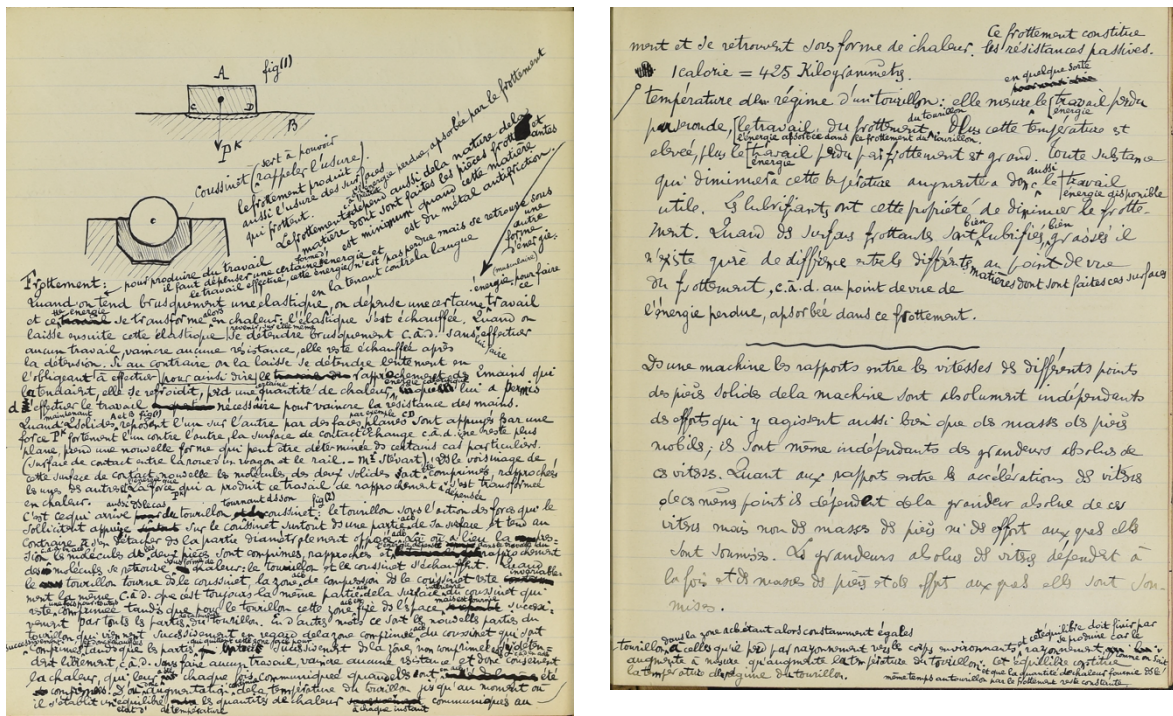 A
fig(1)
C D
B
P K
sert à pouvoir
coussinet (rappeler l'usure)
le frottement produit
aussi l'usure des surfaces
qui frottent.
énergie perdue, absorbée par le frottement
dépend aussi de la nature de la
matière dont sont faites les pièces frottantes et
est minimum quand cette matière
est du métal antifriction.
Frottement: pour produire du travail
il faut dépenser une certaine énergie et
le travail effectué, cette énergie n'est pas perdue mais se retrouve sous
une
autre
forme
d'énergie.
en la tenant contre la langue
Quand on tend brusquement une élastique, on dépense une certaine travail
énergie
et ce se transforme en chaleur: l'élastique s'est échauffée. Quand on
laisse ensuite cette élastique se détendre brusquement c.à.d. sans effectuer
aucun travail, vaincre aucune résistance, elle reste échauffée après
la détension. Si au contraire on la laisse se détendre lentement en
l'obligeant à effectuer (pour ainsi dire) le rapprochement des mains qui
la tendaient, elle se refroidit, perd une quantité de chaleur, lui a permis
d'effectuer le travail nécessaire pour vaincre la résistance des mains.
maintenant A et B fig(1) par exemple CD
Quand 2 solides reposent l'un sur l'autre par des faces planes sont appuyés par une
force P K fortement l'un contre l'autre, la surface de contact change c.à.d. ne reste plus
plane, prend une nouvelle forme qui peut être déterminée ds certains cas particuliers.
(surface de contact entre la roue d'un wagon et le rail. Mr Stévart). Ds le voisinage de
cette surface de contact nouvelle les molécules des deux solides sont comprimées, rapprochées
les unes des autres. La force qui a produit ce travail de rapprochement s'est transformée
dépensée
en chaleur.
aussi ds le cas tournant ds son fig(2)
C'est ce qui arrive tourillon coussinet: le tourillon sous l'action des forces qui le
sollicitent appuie sur le coussinet surtout ds une partie de sa surface et tend au
contraire à s'en détacher de la partie diamétralement opposée. Là où a lieu la
sion les molécules des deux pièces sont comprimées, rapprochées et rapprochement
des molécules se retrouve chaleur: le tourillon et le coussinet s'échauffent. Quand
le tourillon tourne ds le coussinet, la zone de compression ds le coussinet reste
invariable
ment la même c.à.d. que c'est toujours la même partie de la surface du coussinet qui
reste comprimée tandis que pour le tourillon cette zone fixe ds l'espace
vement par tous les parties du tourillon. En d'autres mots ce sont de nouvelles parties du
tourillon qui viennent successivement en regard de la zone comprimée du coussinet qui sont
comprimées tandis que les parties successivement de la zone non comprimée
dent librement, c.à.d. sans faire aucun travail, vaincre aucune résistance et donc conservent
la chaleur, qui leur chaque fois communiquée quand elles ont été
comprimées. D'où augmentation de la température du tourillon jusqu'au moment où
il s'établit un équilibre les quantités de chaleur communiquées au
état d' de température à chaque instant
Ce frottement constitue
ment et se retrouvent sous forme de chaleur. les résistances passives.
1 calorie = 425 Kilogrammètres.
en quelque sorte
température de régime d'un tourillon: elle mesure le travail perdu
énergie
du tourillon
par seconde, le travail du frottement. Plus cette température est
l'énergie absorbée dans le frottement du tourillon.
élevée, plus le travail perdu par frottement est grand. Toute substance
énergie
aussi
qui diminuera cette température augmentera donc le travail
énergie disponible
utile. Les lubrifiants ont cette propriété de diminuer le frotte-
bien bien
ment. Quand des surfaces frottantes sont lubrifiées, graissées il
n'existe guère de différence entre les différents au point de vue
matières dont sont faites ces surfaces
du frottement, c.à.d. au point de vue de
l'énergie perdue, absorbée dans ce frottement.
Ds une machine les rapports entre les vitesses des différents points
des pièces solides de la machine sont absolument indépendants
des efforts qui y agissent aussi bien que des masses des pièces
mobiles; ils sont même indépendants des grandeurs absolues de
ces vitesses. Quant aux rapports entre les accélérations des vitesses
de ces mêmes points ils dépendent de la grandeur absolue de ces
vitesses mais non des masses des pièces ni des efforts auxquels elles
sont soumises. Les grandeurs absolues des vitesses dépendent à
la fois et des masses des pièces et des efforts auxquels elles sont sou-
mises.
dans la zone alors constamment égales
tourillon à celles qu'il perd par rayonnement vers les corps environnants, rayonnement
augmente à mesure qu'augmente la température du tourillon; cet équilibre constitue
la température de régime du tourillon.
et cet équilibre doit finir par
se produire car le
et que la quantité de chaleur fournie ds le
même temps au tourillon par le frottement reste constante.